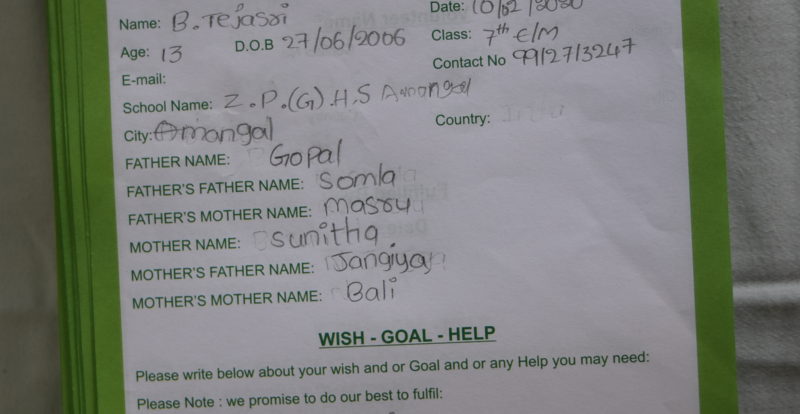 Date: 10/02/2020
Name: B.Tejassi
Class: 7th E/M
Age: 13 D.O.B 27/06/2006
Contact No 9912713247
E-mail:
School Name: Z.P.(G).H.S Amongal
City: Amangal
Country:
FATHER NAME: Gopal
FATHER'S FATHER NAME: Somla
FATHER'S MOTHER NAME: massu
MOTHER NAME: sunitha
MOTHER'S FATHER NAME: Jangiya
MOTHER'S MOTHER NAME: Bali
WISH - GOAL - HELP
Please write below about your wish and or Goal and or any Help you may need:
Please Note : we promise to do our best to fulfil: